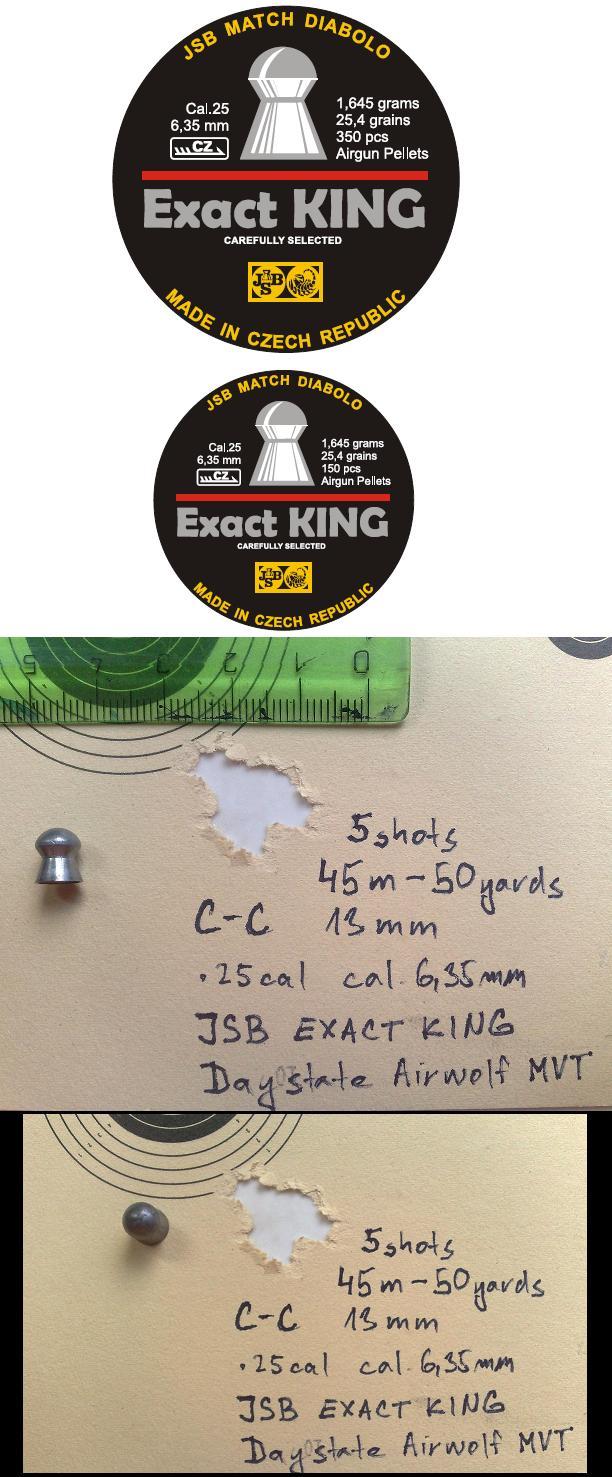 JSB MATCH DIABOLO
Cal.25
6,35 mm
CZ
1,645 grams
25,4 grains
350 pcs
Airgun Pellets
Exact KING
CAREFULLY SELECTED
JSB
MADE IN CZECH REPUBLIC
JSB MATCH DIABOLO
Cal.25
6,35 mm
CZ
1,645 grams
25,4 grains
150 pcs
Airgun Pellets
Exact KING
CAREFULLY SELECTED
JSB
MADE IN CZECH REPUBLIC
5 4 3 2 1 0
5shots
45m-50yards
C-C 13mm
.25cal cal. 6,35mm
JSB EXACT KING
Daystate Airwolf MVT
5shots
45m-50yards
C-C 13mm
.25cal cal. 6,35mm
JSB EXACT KING
Daystate Airwolf MVT